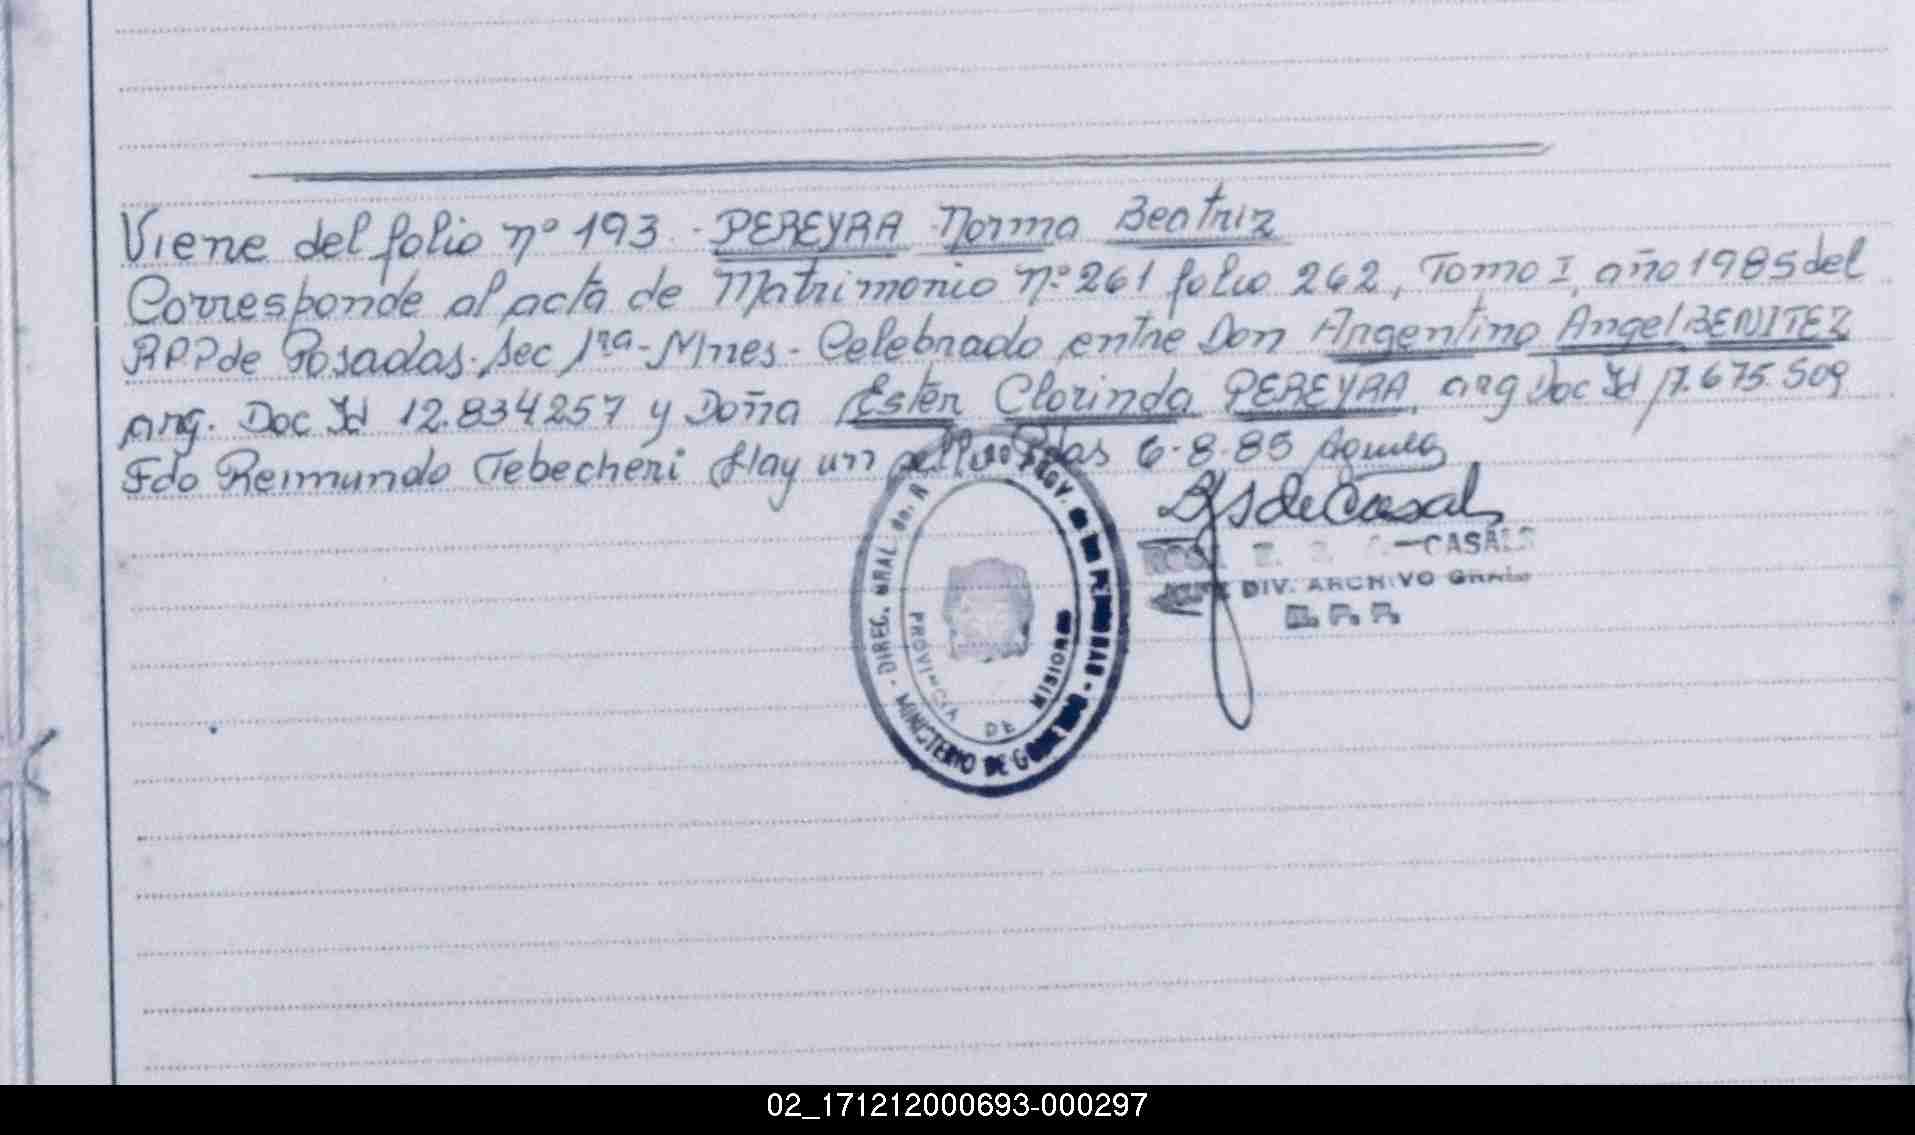 Viene del folio nº 193.- PEREYRA Norma Beatriz
Corresponde al acta de Matrimonio nº 261 folio 262, Tomo I, año 1985 del
RPP de Posadas. Sec 1ra - Mnes - Celebrado entre Don Argentino Angel BENITEZ
arg. Doc Id 12.834257 y Doña Ester Clorinda PEREYRA, arg Doc Id 17.675.509
Fdo Reimundo Tebecheri Hay un sello Pdas 6-8-85
de Casal
ROSA CASALS
DIV. ARCHIVO GRAL
DIREC. GRAL. de. R PROV. de las PERSONAS - MINISTERIO DE GOBIERNO -
PROVINCIA DE MISIONES
02_171212000693-000297